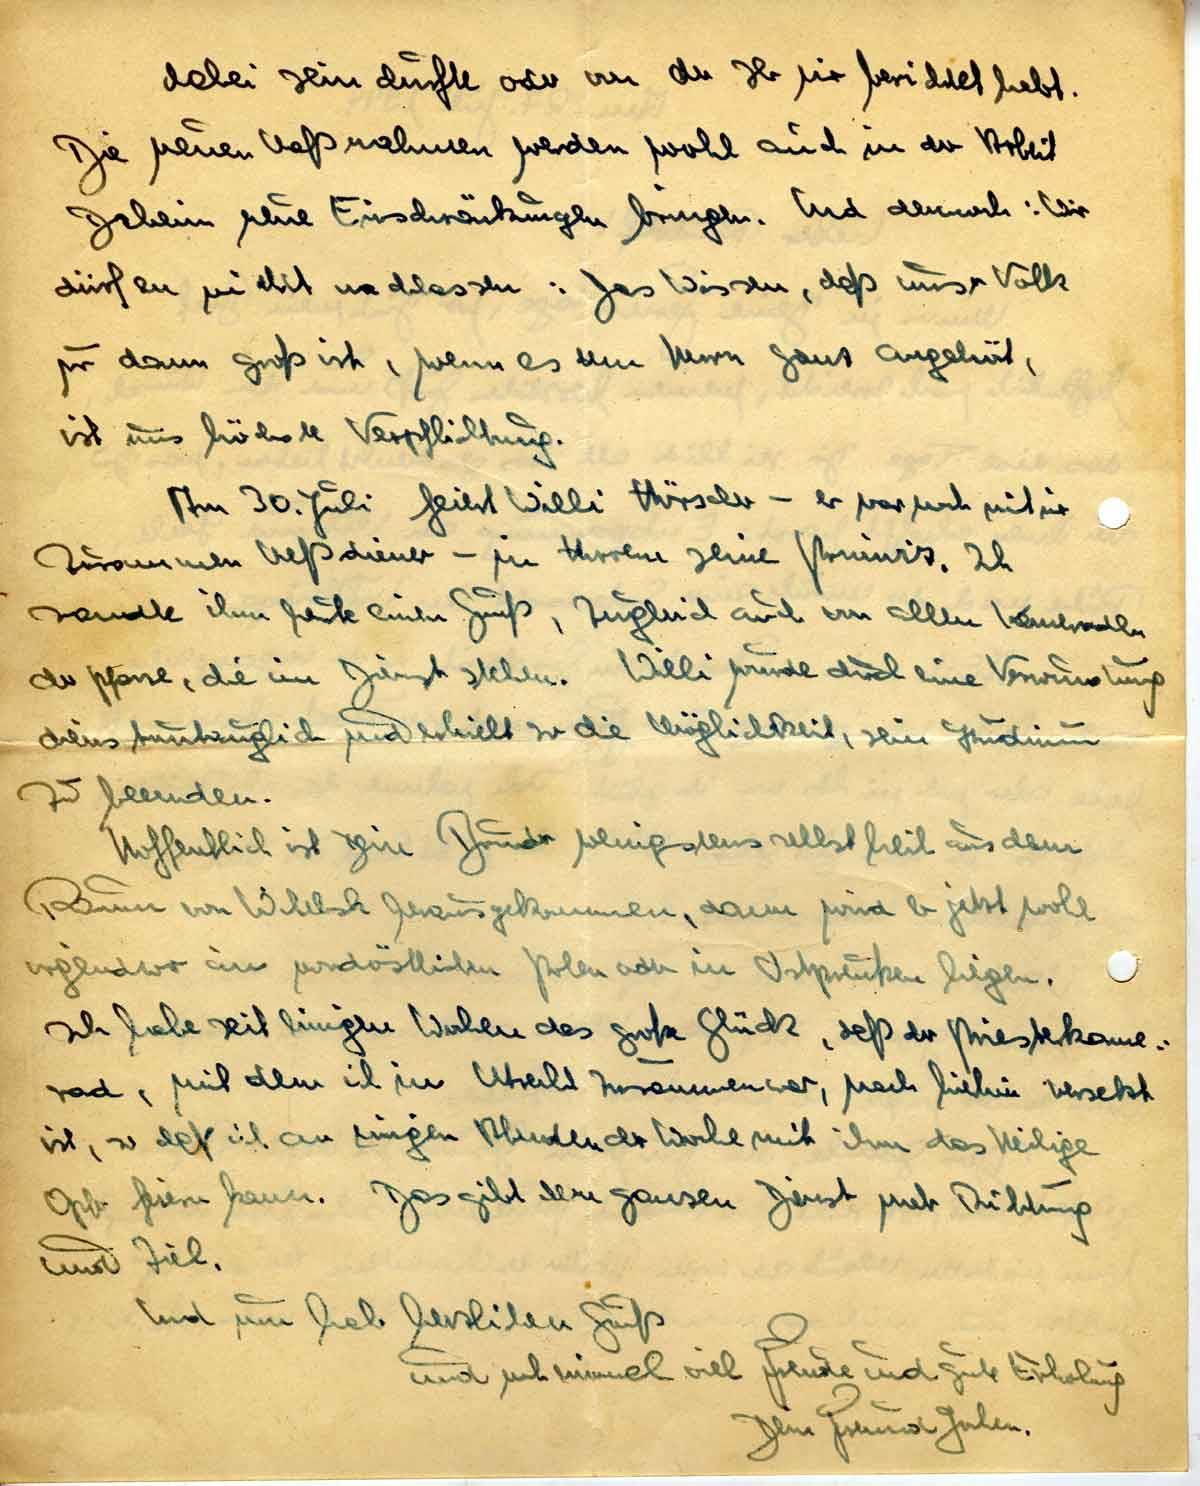 dabei sein durfte oder von der Ihr mir berichtet habt.
Die neuen Maßnahmen werden wohl auch in der Arbeit
daheim neue Einschränkungen bringen. Und dennoch: Wir
dürfen nicht nachlassen: Das Wissen, daß unser Volk
nur dann groß ist, wenn es dem Herrn ganz angehört,
ist uns höchste Verpflichtung.
Am 30. Juli feiert Willi – er war noch mit mir
zusammen Meßdiener – in seine Primiz. Ich
sandte ihm heute einen Gruß, zugleich auch von allen Kameraden
der Pfarre, die im Dienst stehen. Willi wurde durch eine Verwundung
dienstuntauglich und erhielt so die Möglichkeit, sein Studium
zu beenden.
Hoffentlich ist sein Bruder wenigstens selbst heil aus dem
Raum von Witebsk herausgekommen, dann wird er jetzt wohl
irgendwo im nordöstlichen Polen oder in Ostpreußen liegen.
Ich habe seit einigen Wochen das große Glück, daß der Priesterkame-
rad, mit dem ich in Utrecht zusammen war, nach hierhin versetzt
ist, so daß ich an einigen Abenden der Woche mit ihm das Heilige
Opfer feiern kann. Das gibt dem ganzen Dienst mehr Richtung
und Ziel.
Und nun hab herzlichen Gruß
und noch einmal viel Freude und gute Erholung
Dein Freund